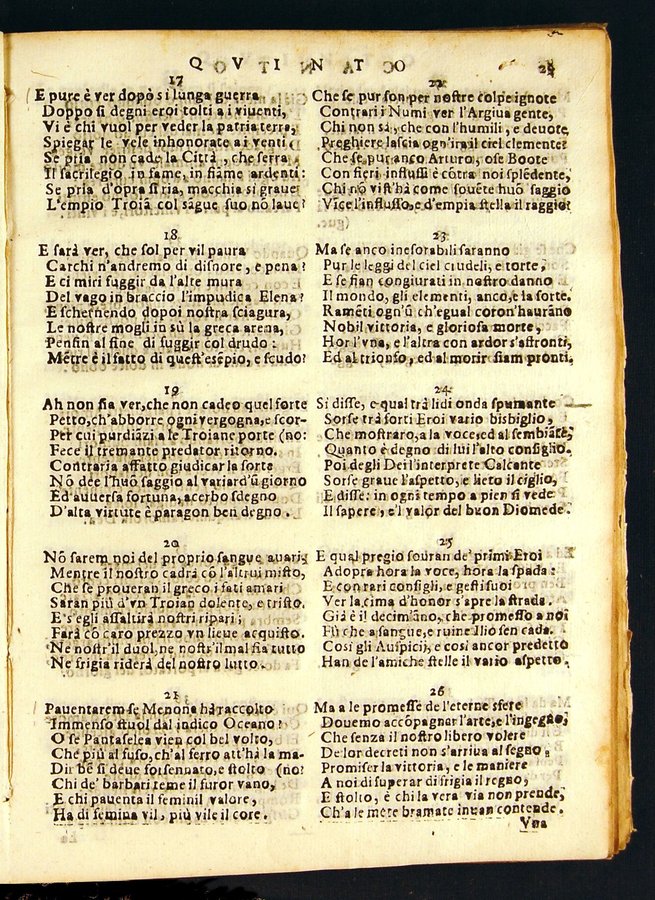 QVINTO
25
17
E pure è ver dopò si lunga guerra
Doppo si degni eroi tolti a i viuenti,
Vi è chi vuol per veder la patria terra,
Spiegar le vele inhonorato a i venti.
Se pria non cade la Città, che serra
Il sacrilegio in fame, in fiame ardenti:
Se pria d'opra sì ria, macchia si graue
L'empio Troiā col sāgue suo nō laue?
18
E sarà ver, che sol per vil paura
Carchi n'andremo di disnore, e pena?
E ci miri fuggir da l'alte mura
Del vago in braccio l'impudica Elena?
E schernendo dopoi nostra sciagura,
Le nostre mogli in sù la greca arena,
Pensin al fine di fuggir col drudo:
Mētre è il fatto di quest'esēpio, e scudo?
19
Ah non sia ver, che non cadeo quel forte
Petto, ch'abborre ogni vergogna, e scor-
Per cui purdiāzi a le Troiane porte (no:
Fece il tremante predator ritorno.
Contraria affatto giudicar la sorte
Nō dee l'huō saggio al variar d'ū giorno
Ed'auuersa fortuna, acerbo sdegno
D'alta virtute è paragon ben degno.
20
Nō sarem noi del proprio sangue auari;
Mentre il nostro cadrà cō l'altrui misto,
Che se proueran il greco i fati amari
Saran più d'vn Troian dolente, e tristo.
E s'egli assaltirà nostri ripari;
Farà cō caro prezzo vn lieue acquisto.
Ne nostr'il duol, ne nostr'il mal sia tutto
Ne frigia riderà del nostro lutto.
21
Pauentarem se Menona hà raccolto
Immenso stuol dal indico Oceano?
O se Pantaselea vien col bel volto,
Che più al fuso, ch'al ferro att'hà la ma-
Dir bē si deue forsennato, e stolto (no?
Chi de' barbari teme il furor vano,
E chi pauenta il feminil valore,
Ha di femina vil, più vile il core.
22
Che se pur son per nostre colpe ignote
Contrari i Numi ver l'Argiua gente,
Chi non sà, che con l'humili, e deuote
Preghiere lascia ogn'ira il ciel clemente?
Che se pur anco Arturo, ose Boote
Con fieri influssi è cōtra noi splēdente,
Chi nō vist'hà come souēte huō saggio
Vice l'influsso, e d'empia stella il raggio?
23
Ma se anco inesorabili saranno
Pur le leggi del ciel crudeli, e torte,
E se sian congiurati in nostro danno
Il mondo, gli elementi, anco, e la sorte.
Ramēti ogn'ū ch'egual coron'haurāno
Nobil vittoria, e gloriosa morte,
Hor l'vna, e l'altra con ardor s'affronti,
Ed al trionfo, ed al morir siam pronti.
24
Si disse, e qual trà lidi onda spumante
Sorse trà forti Eroi vario bisbiglio,
Che mostraro, a la voce, ed al sembiāte,
Quanto è degno di lui l'alto consiglio.
Poi degli Dei l'interprete Calcante
Sorse graue l'aspetto, e lieto il ciglio,
E disse: in ogni tempo a pien si vede
Il sapere, e'l valor del buon Diomede.
25
E qual pregio souran de' primi Eroi
Adopra hora la voce, hora la spada:
E con rari consigli, e gesti suoi
Ver la cima d'honor s'apre la strada.
Già è il decim'āno, che promesso a noi
Fù che a sangue, e ruine Ilio sen cada.
Cosi gli Auspicij, e cosi ancor predetto
Han de l'amiche stelle il vario aspetto.
26
Ma a le promesse de l'eterne sfere
Douemo accōpagnar l'arte, e l'ingegno,
Che senza il nostro libero volere
De lor decreti non s'arriua al segno,
Promiser la vittoria, e le maniere
A noi di superar di frigia il regno,
E stolto, è chi la vera via non prende,
Ch'a le mete bramate inuan contende.
Vna